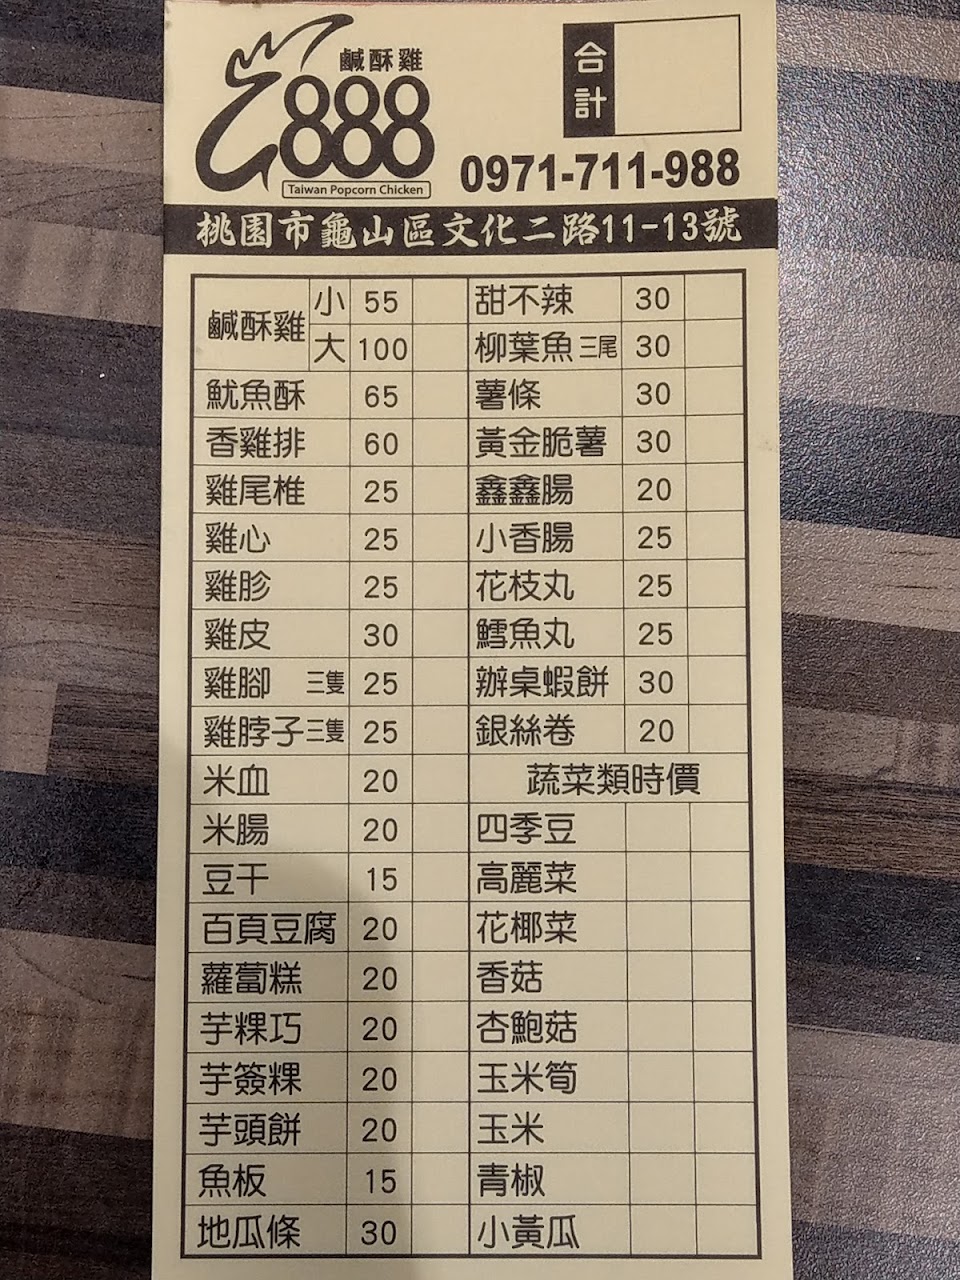 鹹酥雞
888
Taiwan Popcorn Chicken
合計
0971-711-988
桃園市龜山區文化二路11-13號
鹹酥雞 小 55
大 100
魷魚酥 65
香雞排 60
雞尾椎 25
雞心 25
雞胗 25
雞皮 30
雞腳 三隻 25
雞脖子三隻 25
米血 20
米腸 20
豆干 15
百頁豆腐 20
蘿蔔糕 20
芋粿巧 20
芋簽粿 20
芋頭餅 20
魚板 15
地瓜條 30
甜不辣 30
柳葉魚三尾 30
薯條 30
黃金脆薯 30
鑫鑫腸 20
小香腸 25
花枝丸 25
鱈魚丸 25
辦桌蝦餅 30
銀絲卷 20
蔬菜類時價
四季豆
高麗菜
花椰菜
香菇
杏鮑菇
玉米筍
玉米
青椒
小黃瓜